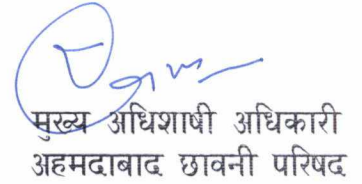 मुख्य अधिशाषी अधिकारी
अहमदाबाद छावनी परिषद